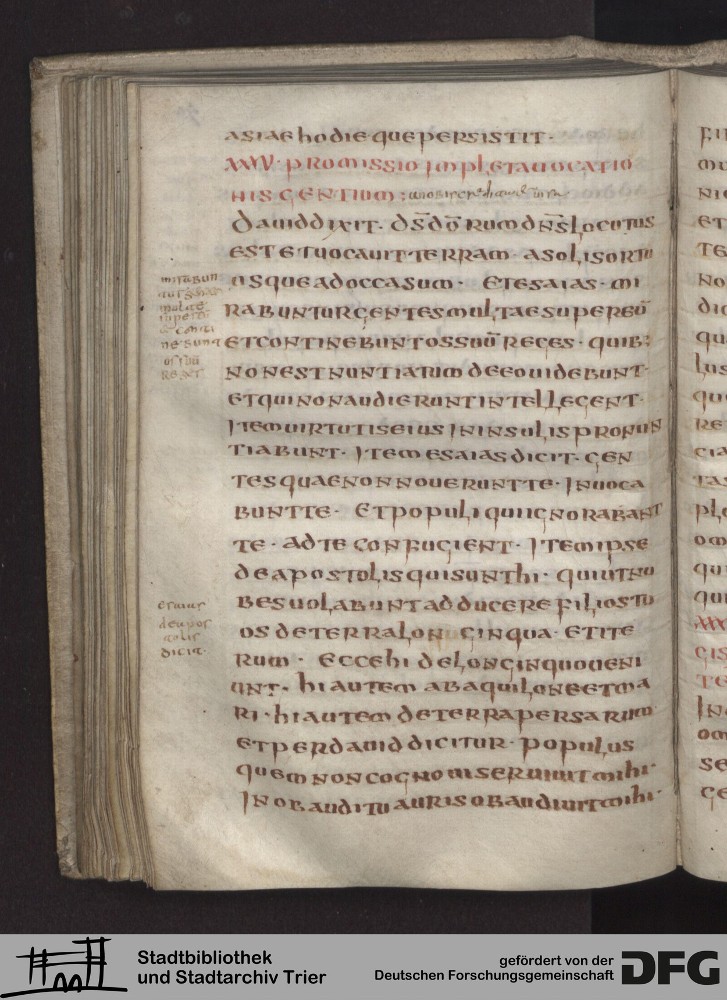 asiae hodieque persistit·
XXXV· promissio impleta vocatio
nis gentium:
david dixit· d̄s dō̄rum dn̄s locutus
est et vocavit terram· a solis ortu
usque ad occasum· et esaias· mi
rabuntur gentes multae super eū
et continebunt os suū reges· quib;
non est nuntiatum de eo videbunt·
et qui non audierunt intellegent·
item virtutis eius in insulis pronun
tiabunt· item esaias dicit· gen
tes quae non noverunt te· invoca
bunt te· et populi qui ignorabant
te· ad te confugient· item ipse
de apostolis qui sunt hi· qui ut nu
bes volabunt adducere filios tu
os de terra longinqua· et ite
rum· ecce hi de longinquo veni
unt· hi autem ab aquilone et ma
ri· hi autem de terra persarum
et per david dicitur· populus
quem non cognovi servivit mihi·
in obauditu auris obaudivit mihi·
mirabun
multae
super
conti
nebunt
os suū
reges
de apos
tolis
dicit·
Stadtbibliothek
und Stadtarchiv Trier
gefördert von der
Deutschen Forschungsgemeinschaft
DFG